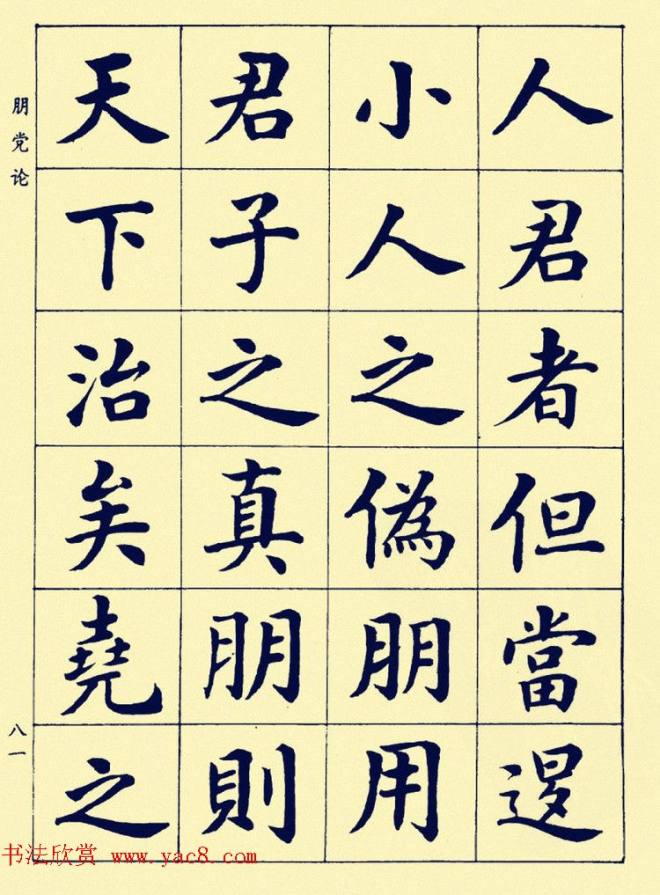 人君者但當退
小人之偽朋用
君子之真朋則
天下治矣堯之
朋党论
八一
书法欣赏 www.yac8.com